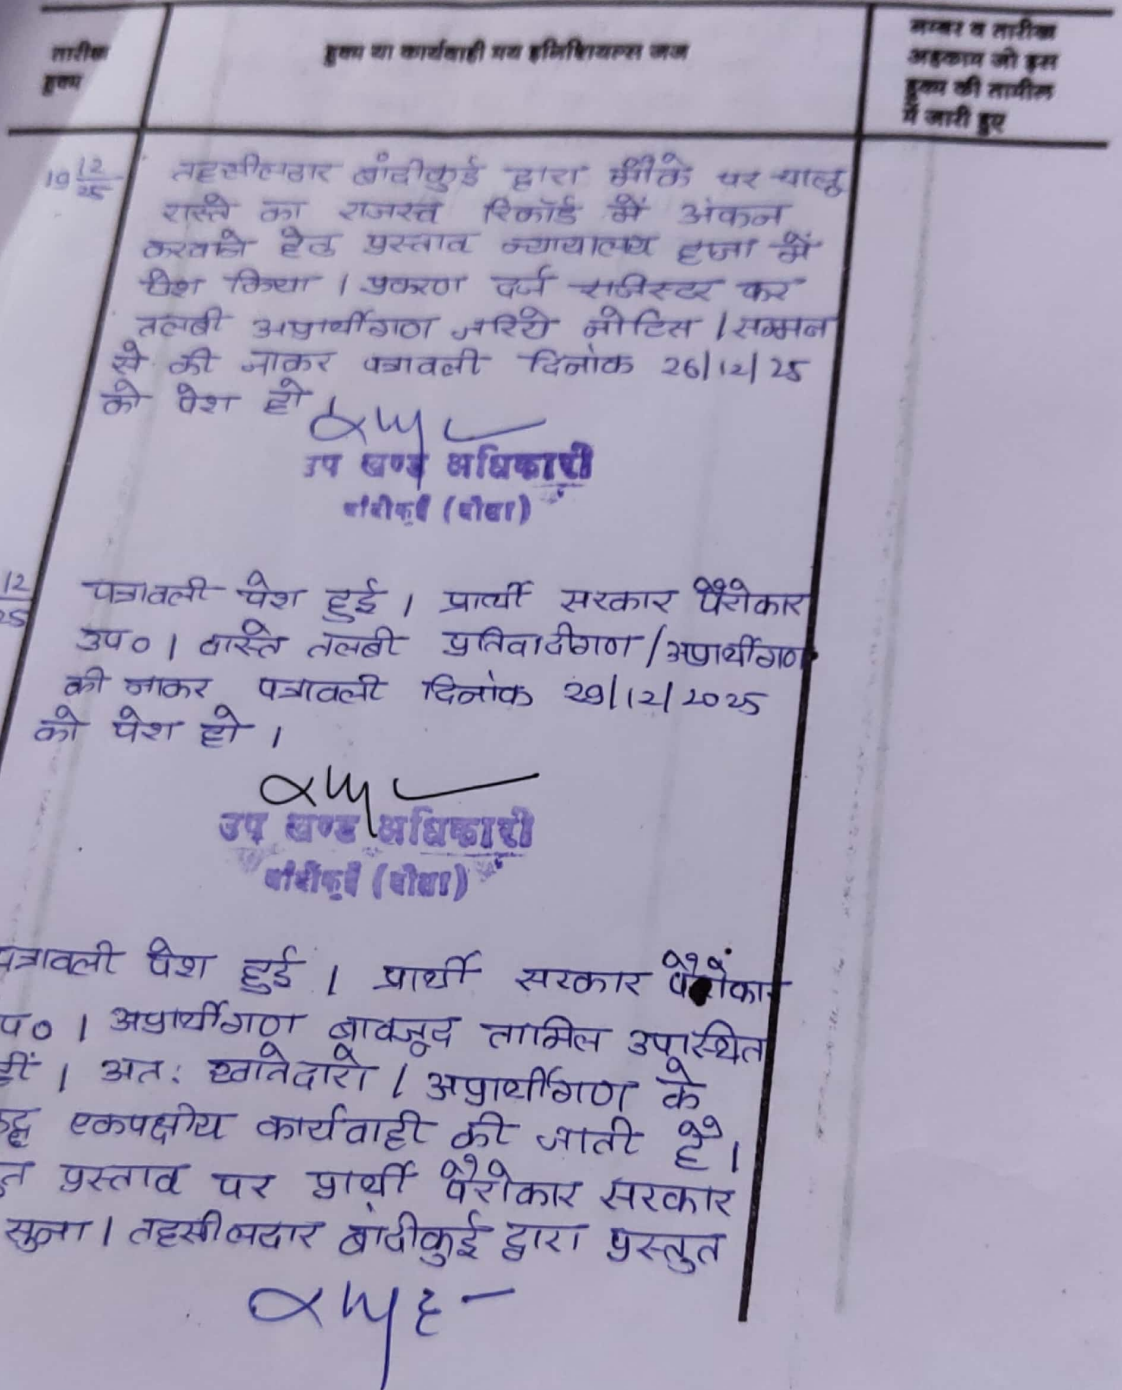 तारीख
हुक्म
हुक्म या कार्यवाही मय इनिशियल्स जज
नम्बर व तारीख
अहकाम जो इस
हुक्म की तामील
में जारी हुए
19 12/25
तहसीलदार बांदीकुई द्वारा मौके पर चालू
रास्ते का राजस्व रिकॉर्ड में अंकन
करवाने हेतु प्रस्ताव न्यायालय हाजा में
पेश किया । प्रकरण दर्ज रजिस्टर कर
तलबी अप्रार्थीगण जरिये नोटिस / सम्मन
से की जाकर पत्रावली दिनांक 26/12/25
को पेश हो
उप खण्ड अधिकारी
बांदीकुई (दौसा)
12/25
पत्रावली पेश हुई । प्रार्थी सरकार पैरोकार
उप० । वास्ते तलबी प्रतिवादीगण / अप्रार्थीगण
की जाकर पत्रावली दिनांक 29/12/2025
को पेश हो ।
उप खण्ड अधिकारी
बांदीकुई (दौसा)
पत्रावली पेश हुई । प्रार्थी सरकार पैरोकार
प० । अप्रार्थीगण बावजूद तामिल उपस्थित
हीं । अतः खातेदारो / अप्रार्थीगण के
रुद्ध एकपक्षीय कार्यवाही की जाती है ।
त प्रस्ताव पर प्रार्थी पैरोकार सरकार
सुना । तहसीलदार बांदीकुई द्वारा प्रस्तुत